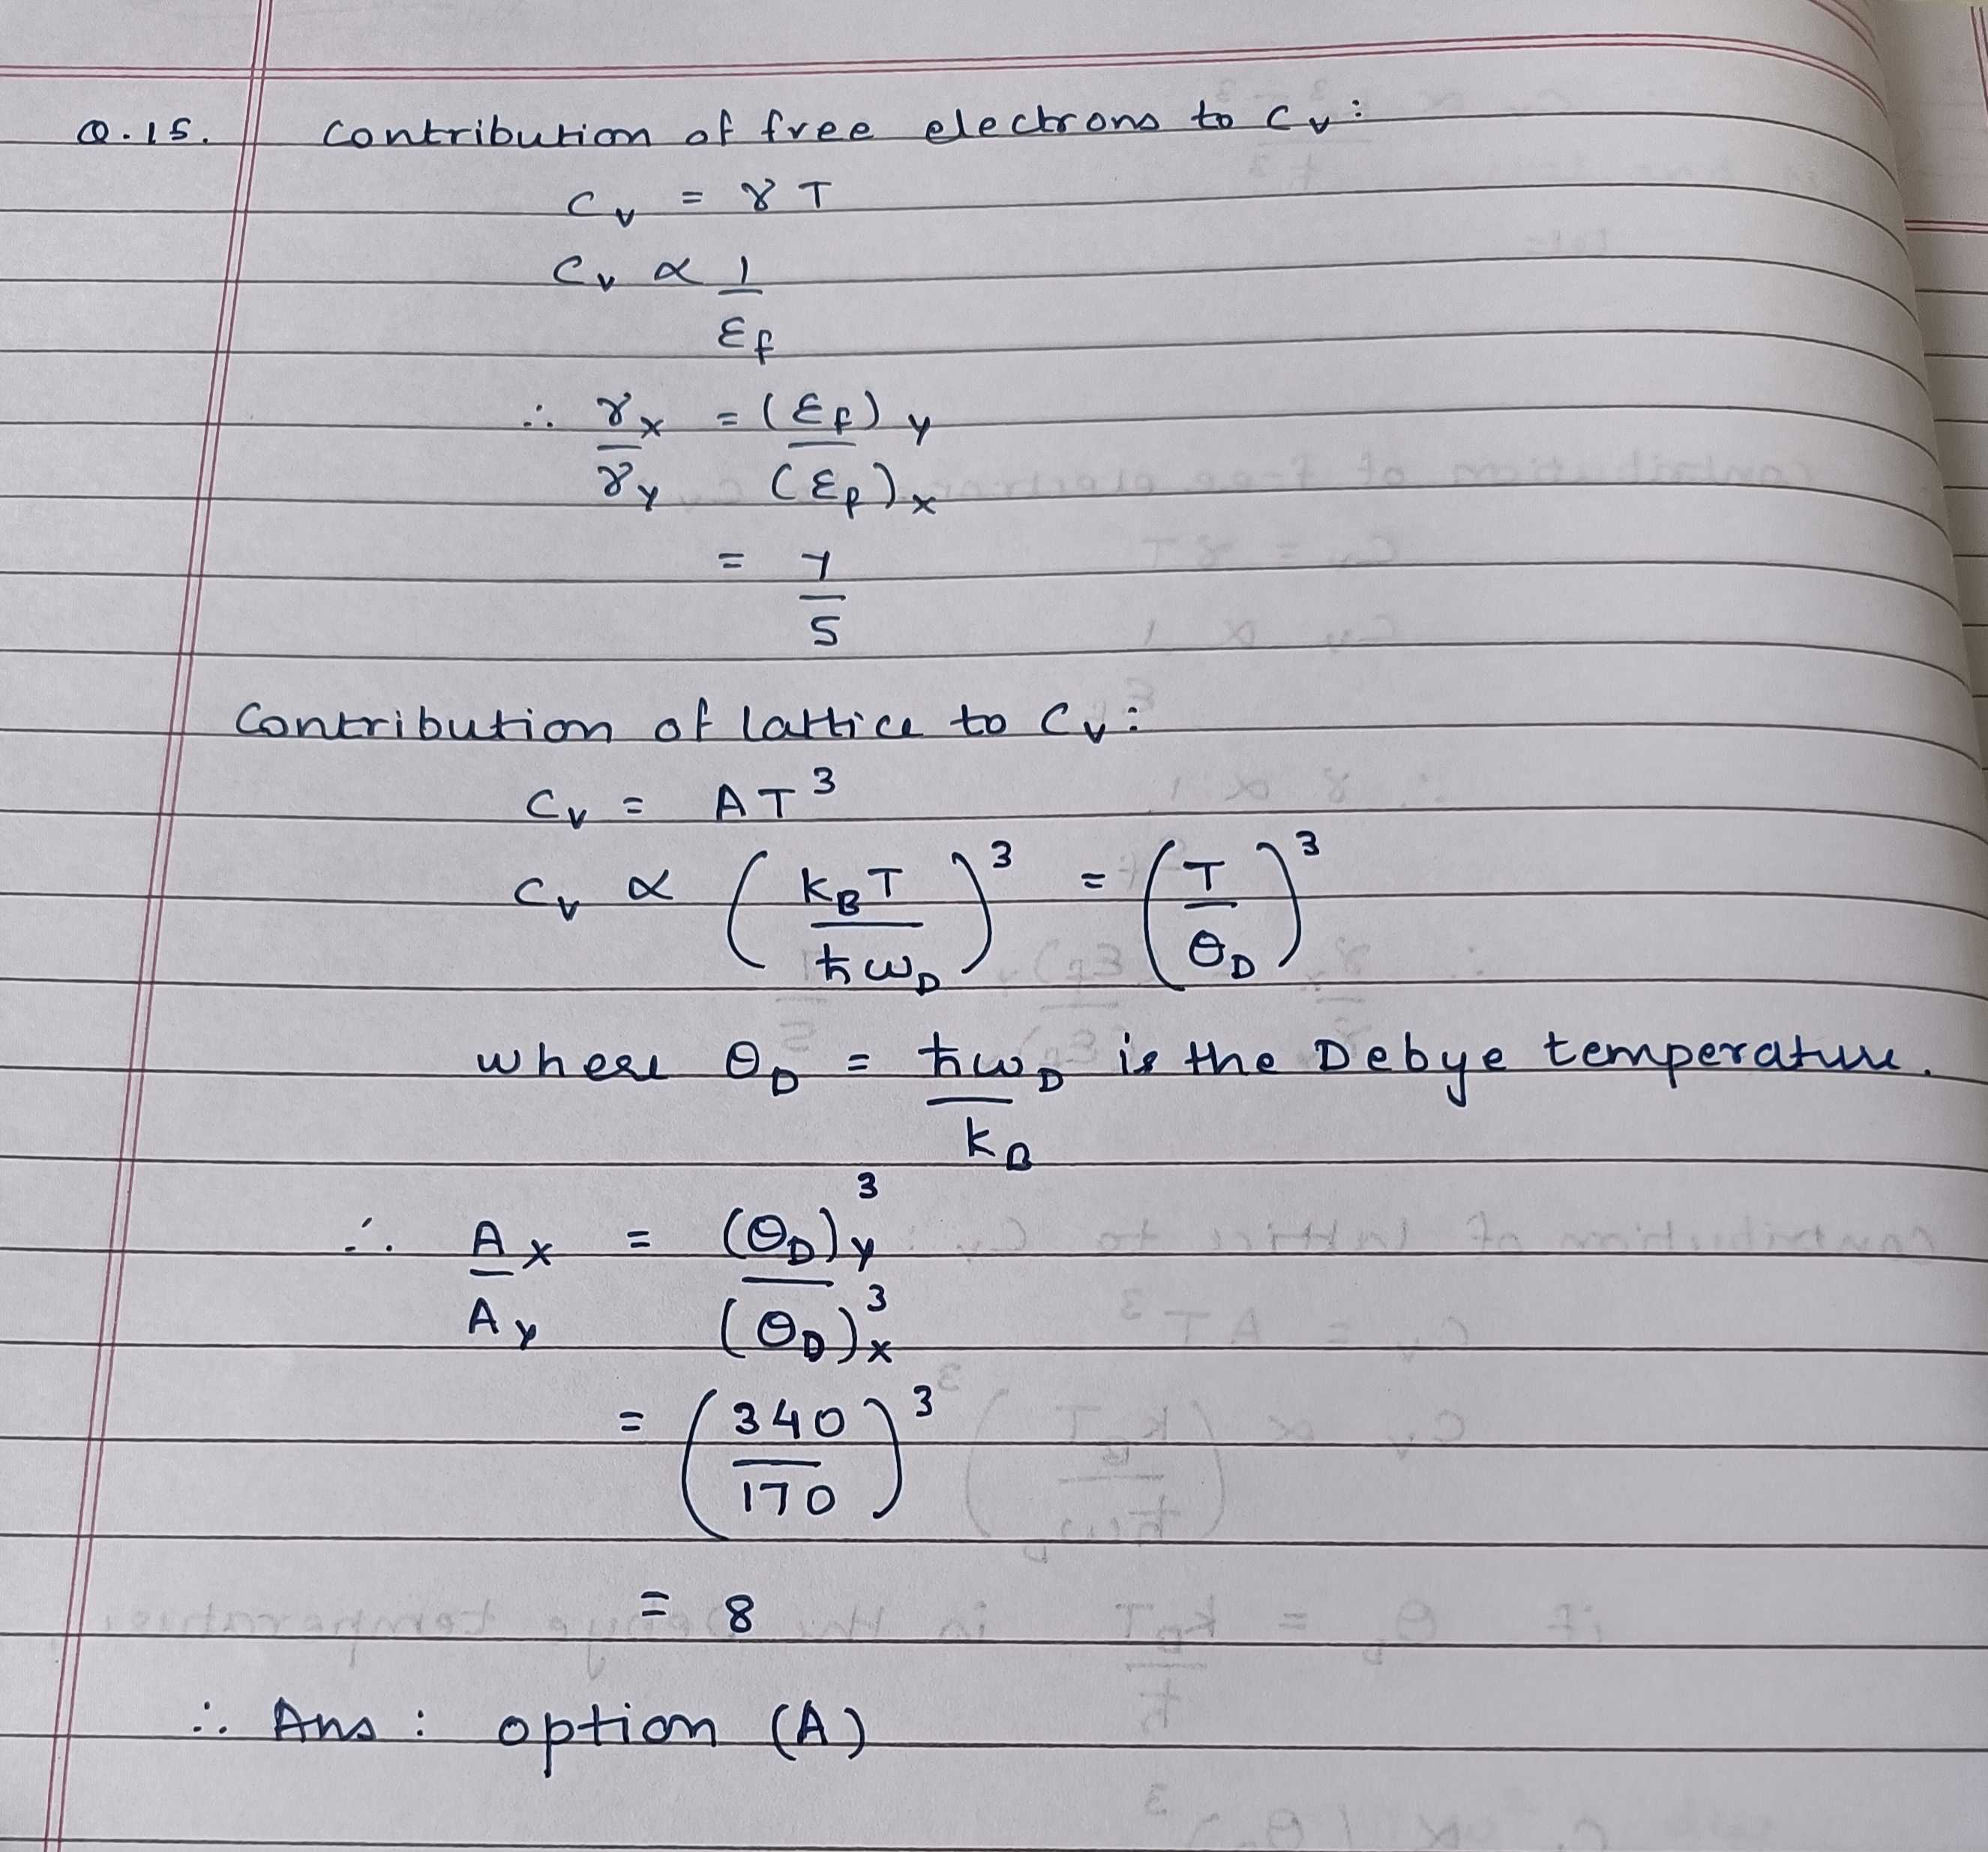 Q.15. Contribution of free electrons to Cv:
Cv = γT
Cv ∝ 1
εf
∴ γx = (εf)y
γy (εf)x
= 7
5
Contribution of lattice to Cv:
Cv = AT³
Cv ∝ ( kBT )³ = ( T )³
ħωD θD
where θD = ħωD is the Debye temperature.
kB
∴ Ax = (θD)³y
Ay (θD)³x
= ( 340 )³
170
= 8
∴ Ans: option (A)